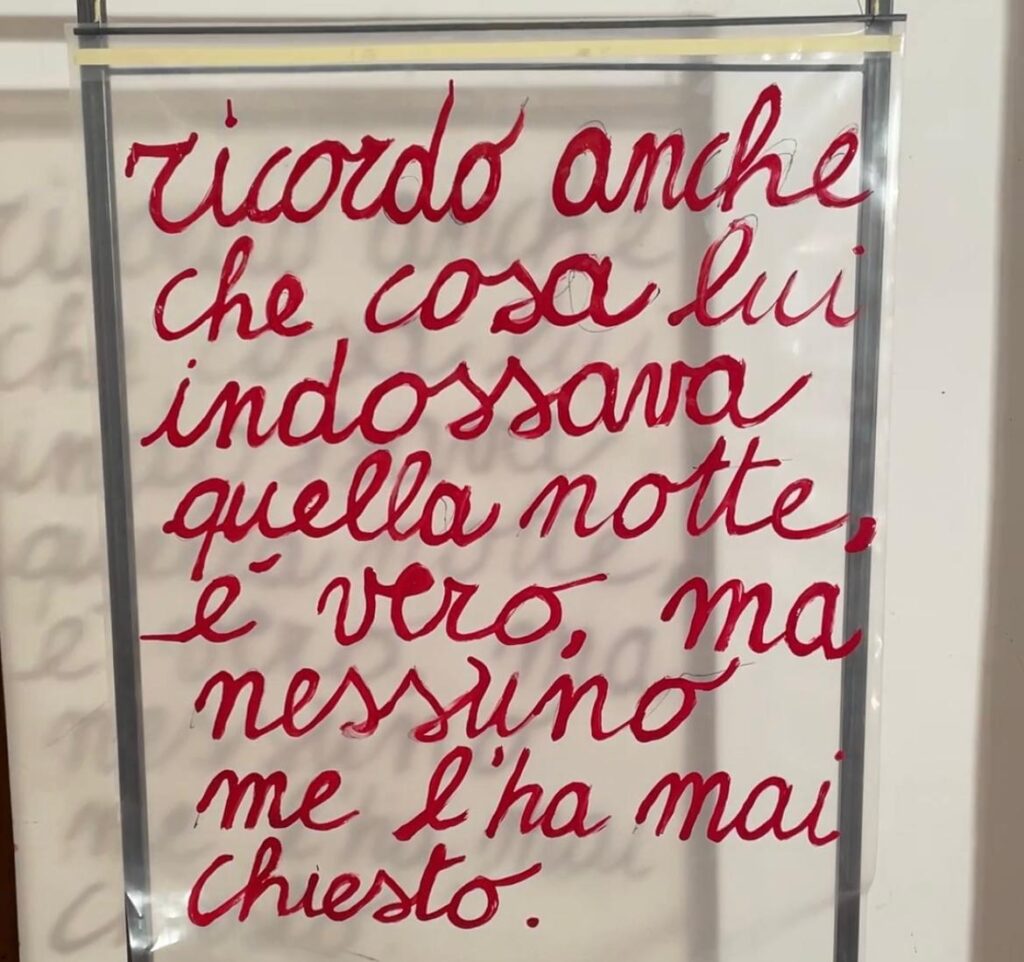 ricordo anche
che cosa lui
indossava
quella notte,
é vero, ma
nessuno
me l'ha mai
chiesto.